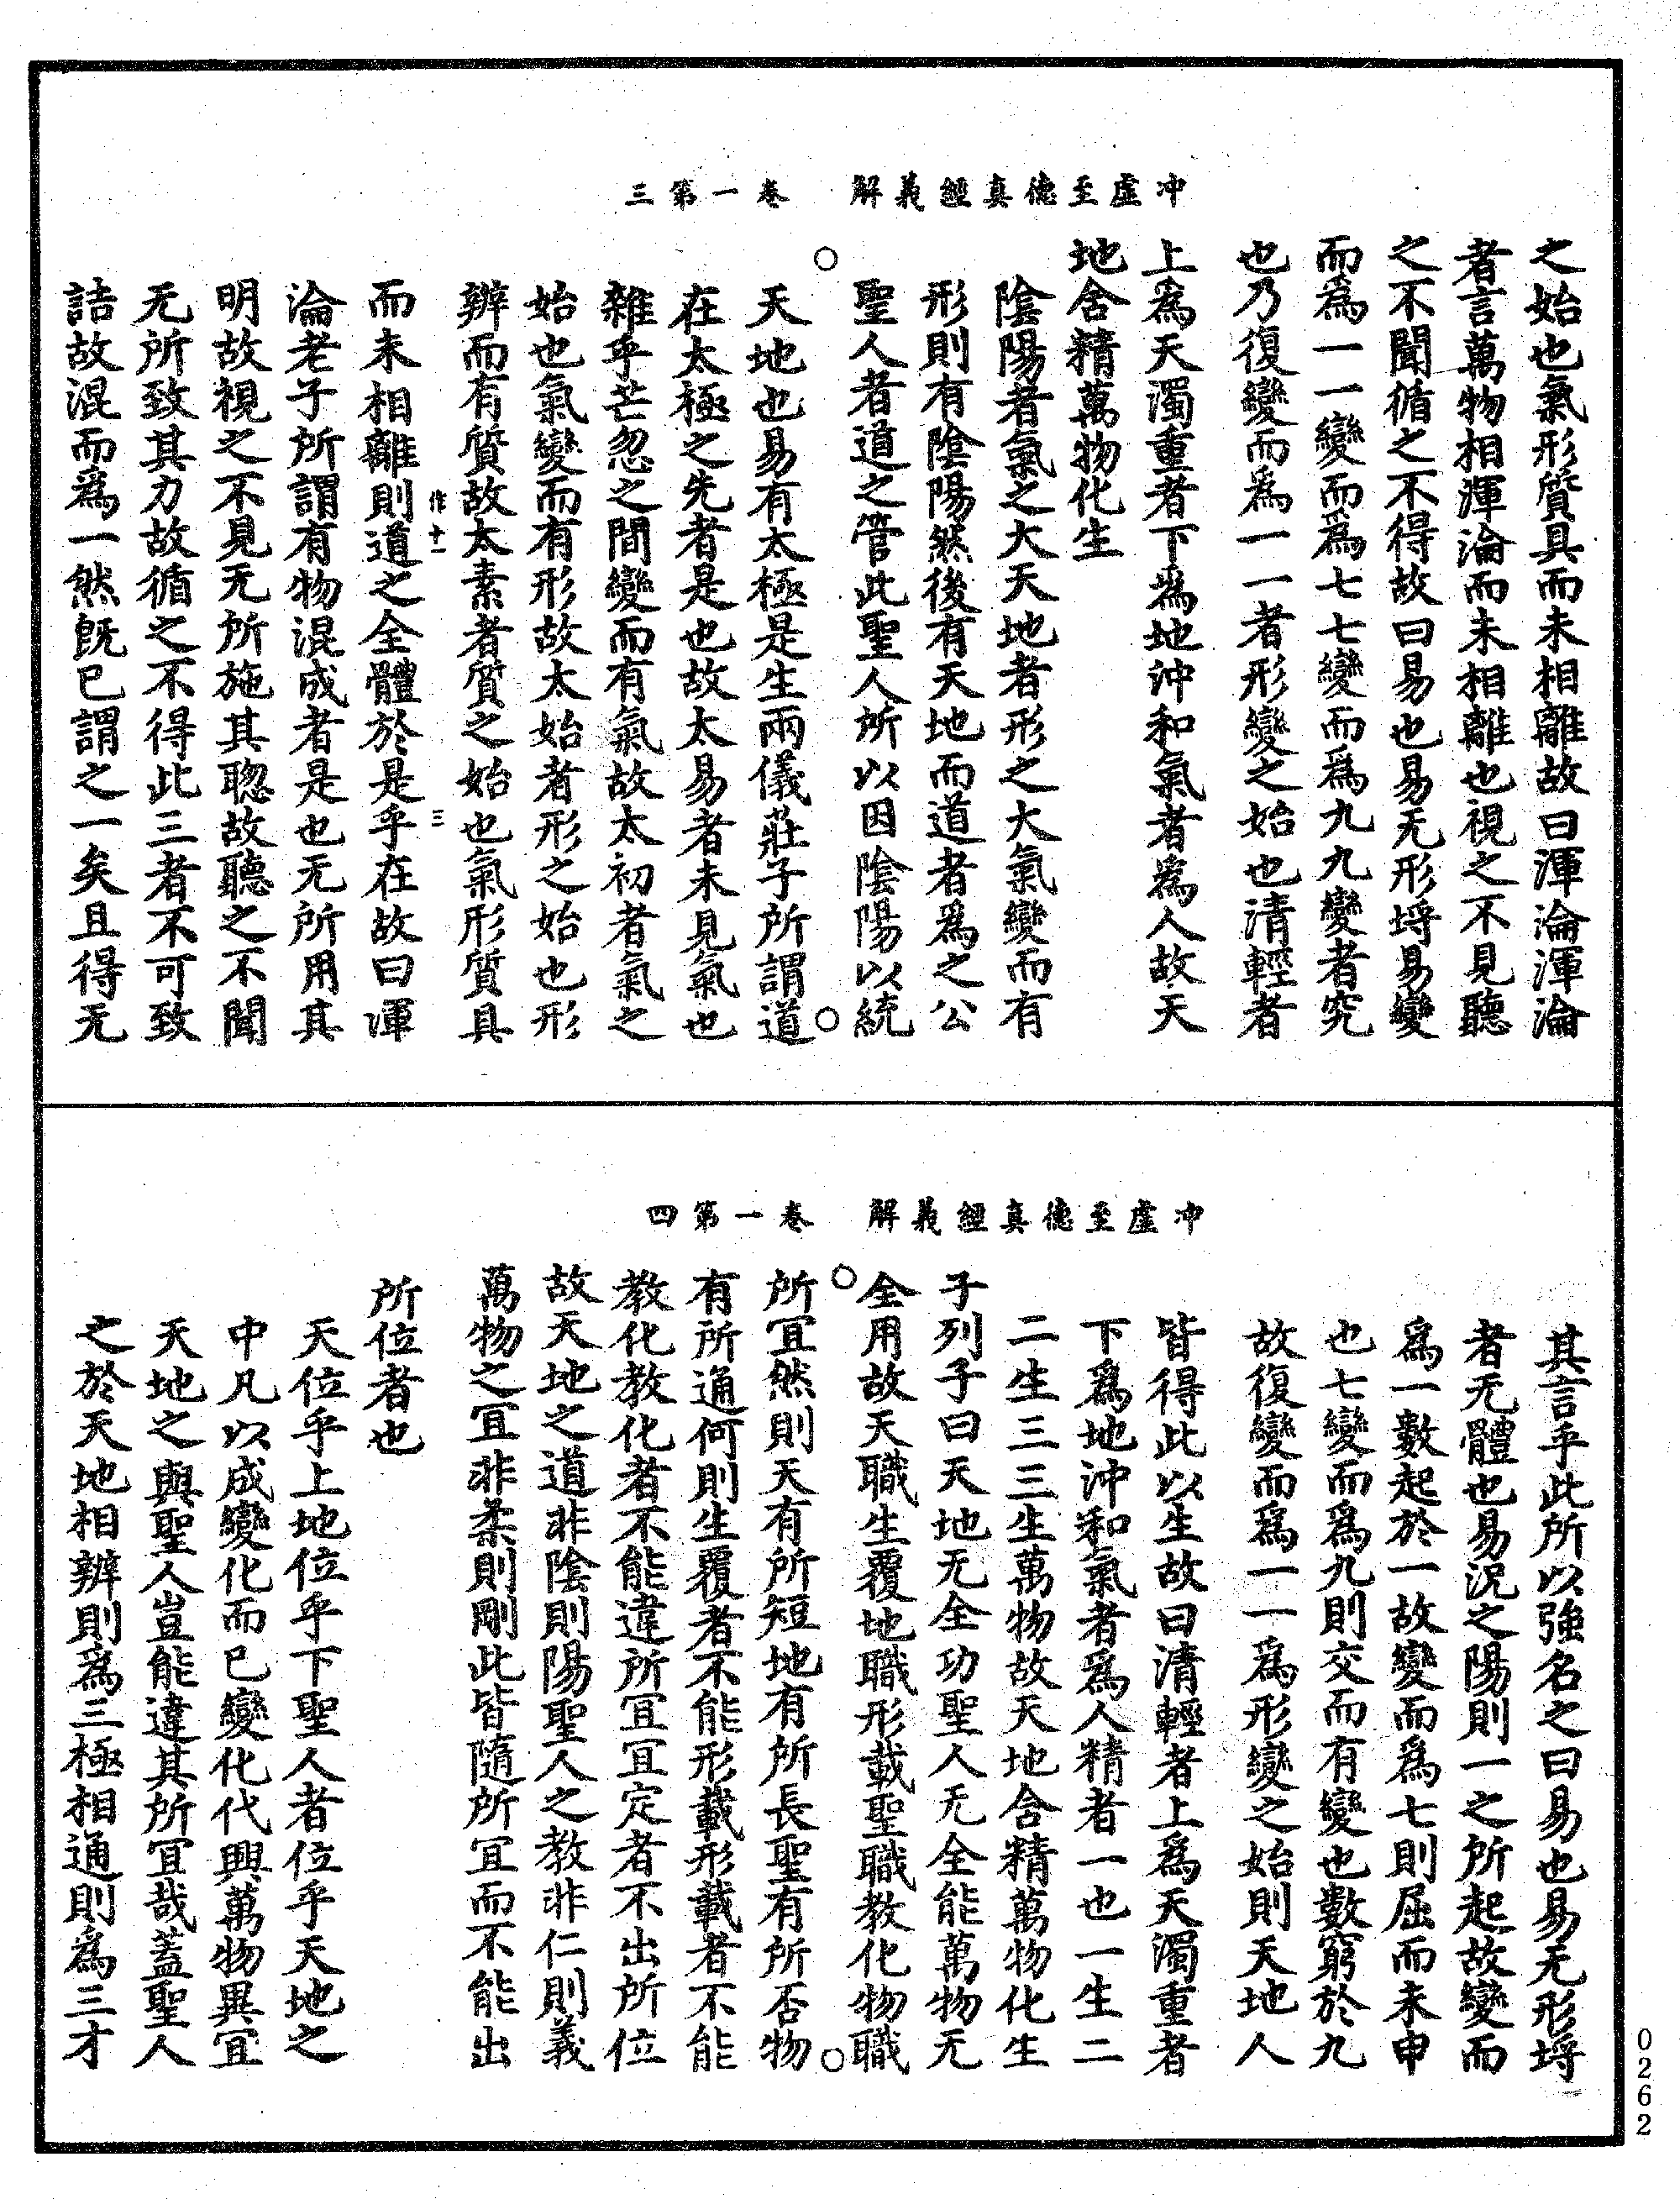 冲虛至德真經義解　卷一第三
之始也氣形質具而未相離故曰渾淪渾淪
者言萬物相渾淪而未相離也視之不見聽
之不聞循之不得故曰易也易无形埒易變
而為一一變而為七七變而為九九變者究
也乃復變而為一一者形變之始也清輕者
上為天濁重者下為地沖和氣者為人故天
地含精萬物化生
陰陽者氣之大天地者形之大氣變而有
形則有陰陽然後有天地而道者為之公
聖人者道之管此聖人所以因陰陽以統
天地也易有太極是生兩儀莊子所謂道
在太極之先者是也故太易者未見氣也
雜乎芒忽之間變而有氣故太初者氣之
始也氣變而有形故太始者形之始也形
辨而有質故太素者質之始也氣形質具
作十一　三
而未相離則道之全體於是乎在故曰渾
淪老子所謂有物混成者是也无所用其
明故視之不見无所施其聦故聽之不聞
无所致其力故循之不得此三者不可致
詰故混而為一然旣已謂之一矣且得无
冲虛至德真經義解　卷一第四
其言乎此所以強名之曰易也易无形埒
者无體也易況之陽則一之所起故變而
為一數起於一故變而為七則屈而未申
也七變而為九則交而有變也數窮於九
故復變而為一一為形變之始則天地人
皆得此以生故曰清輕者上為天濁重者
下為地沖和氣者為人精者一也一生二
二生三三生萬物故天地含精萬物化生
子列子曰天地无全功聖人无全能萬物无
全用故天職生覆地職形載聖職教化物職
所冝然則天有所短地有所長聖有所否物
有所通何則生覆者不能形載形載者不能
教化教化者不能違所冝冝定者不出所位
故天地之道非陰則陽聖人之教非仁則義
萬物之冝非柔則剛此皆隨所冝而不能出
所位者也
天位乎上地位乎下聖人者位乎天地之
中凡以成變化而已變化代興萬物異冝
天地之與聖人豈能違其所冝哉蓋聖人
之於天地相辨則為三極相通則為三才
0262